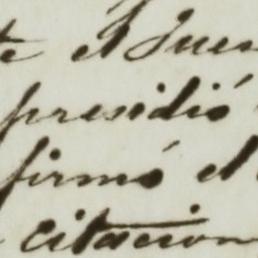 te el Juez
presidió
firmó el
citacion